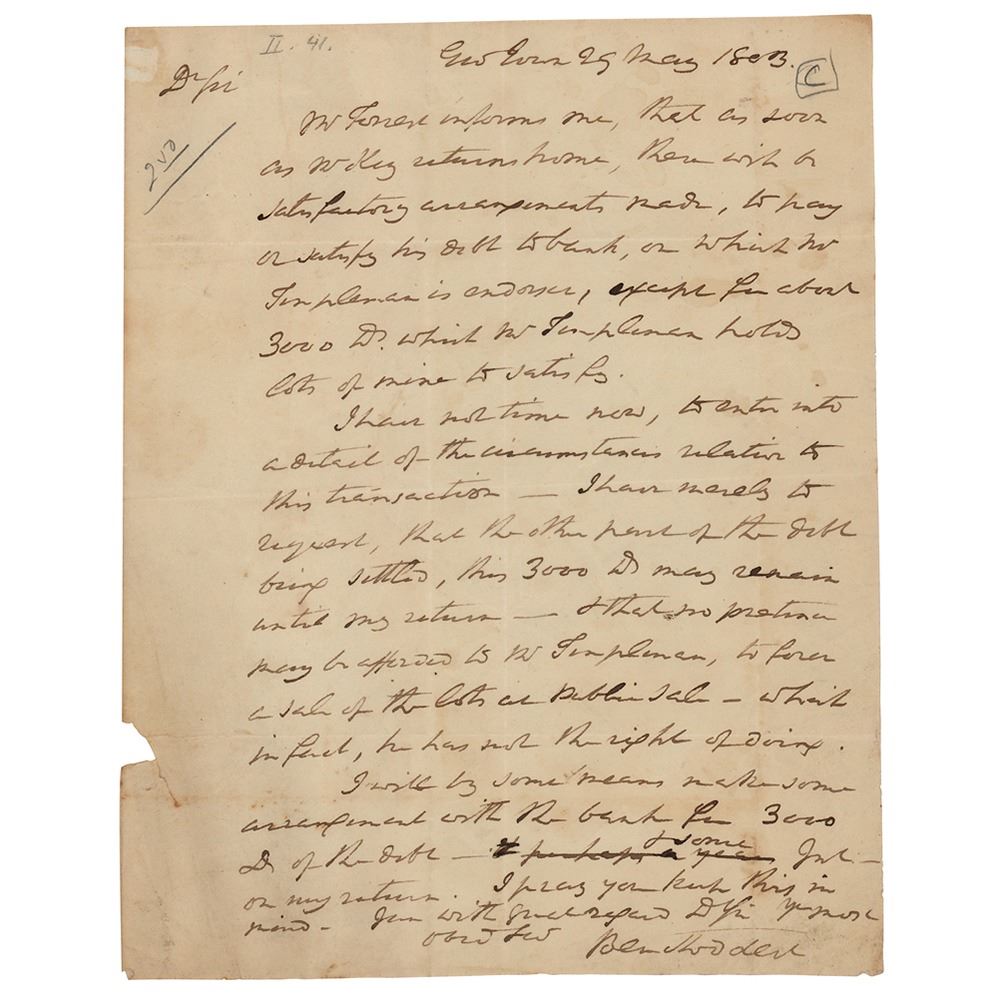 II. 41.
Geo Town 29 May 1803.
C
Dr Sir
250
Mr Forrest informs me, that as soon
as Mr Key returns home, there will be
satisfactory arrangements made, to pay
or satisfy his debt to bank, on which Mr
Templeman is endorser, except for about
3000 Ds. which Mr Templeman holds
lots of mine to satisfy.
I have not time now, to enter into
a detail of the circumstances relative to
this transaction — I have merely to
request, that the other part of the debt
being settled, this 3000 Ds may remain
until my return — & that no pretence
may be afforded to Mr Templeman, to force
a sale of the lots at Public sale — which
in fact, he has not the right of doing.
I will by some means make some
arrangement with the bank for 3000
Ds of the debt — & perhaps a year & some Int —
on my return. I pray you keep this in
mind — I am with great regard D Sir Yr most
obed Ser
Ben Stoddert